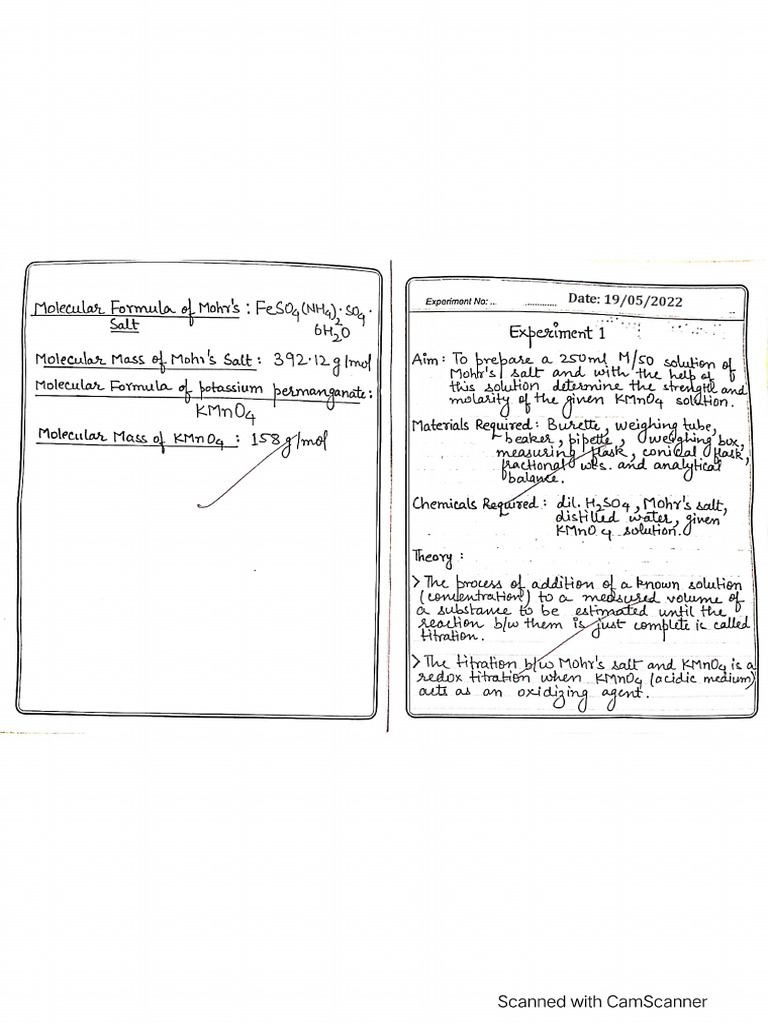 Molecular Formula of Mohr's : FeSO4(NH4)2·SO4·
Salt 6H2O
Molecular Mass of Mohr's Salt : 392.12 g/mol
Molecular Formula of potassium permanganate :
KMnO4
Molecular Mass of KMnO4 : 158 g/mol
Experiment No: ... ............. Date: 19/05/2022
Experiment 1
Aim : To prepare a 250ml M/50 solution of
Mohr's salt and with the help of
this solution determine the strength and
molarity of the given KMnO4 solution.
Materials Required : Burette, weighing tube,
beaker, pipette, weighing box,
measuring flask, conical flask,
fractional wts. and analytical
balance.
Chemicals Required : dil. H2SO4, Mohr's salt,
distilled water, given
KMnO4 solution.
Theory :
> The process of addition of a known solution
(concentration) to a measured volume of
a substance to be estimated until the
reaction b/w them is just complete is called
titration.
> The titration b/w Mohr's salt and KMnO4 is a
redox titration when KMnO4 (acidic medium)
acts as an oxidizing agent.
Scanned with CamScanner